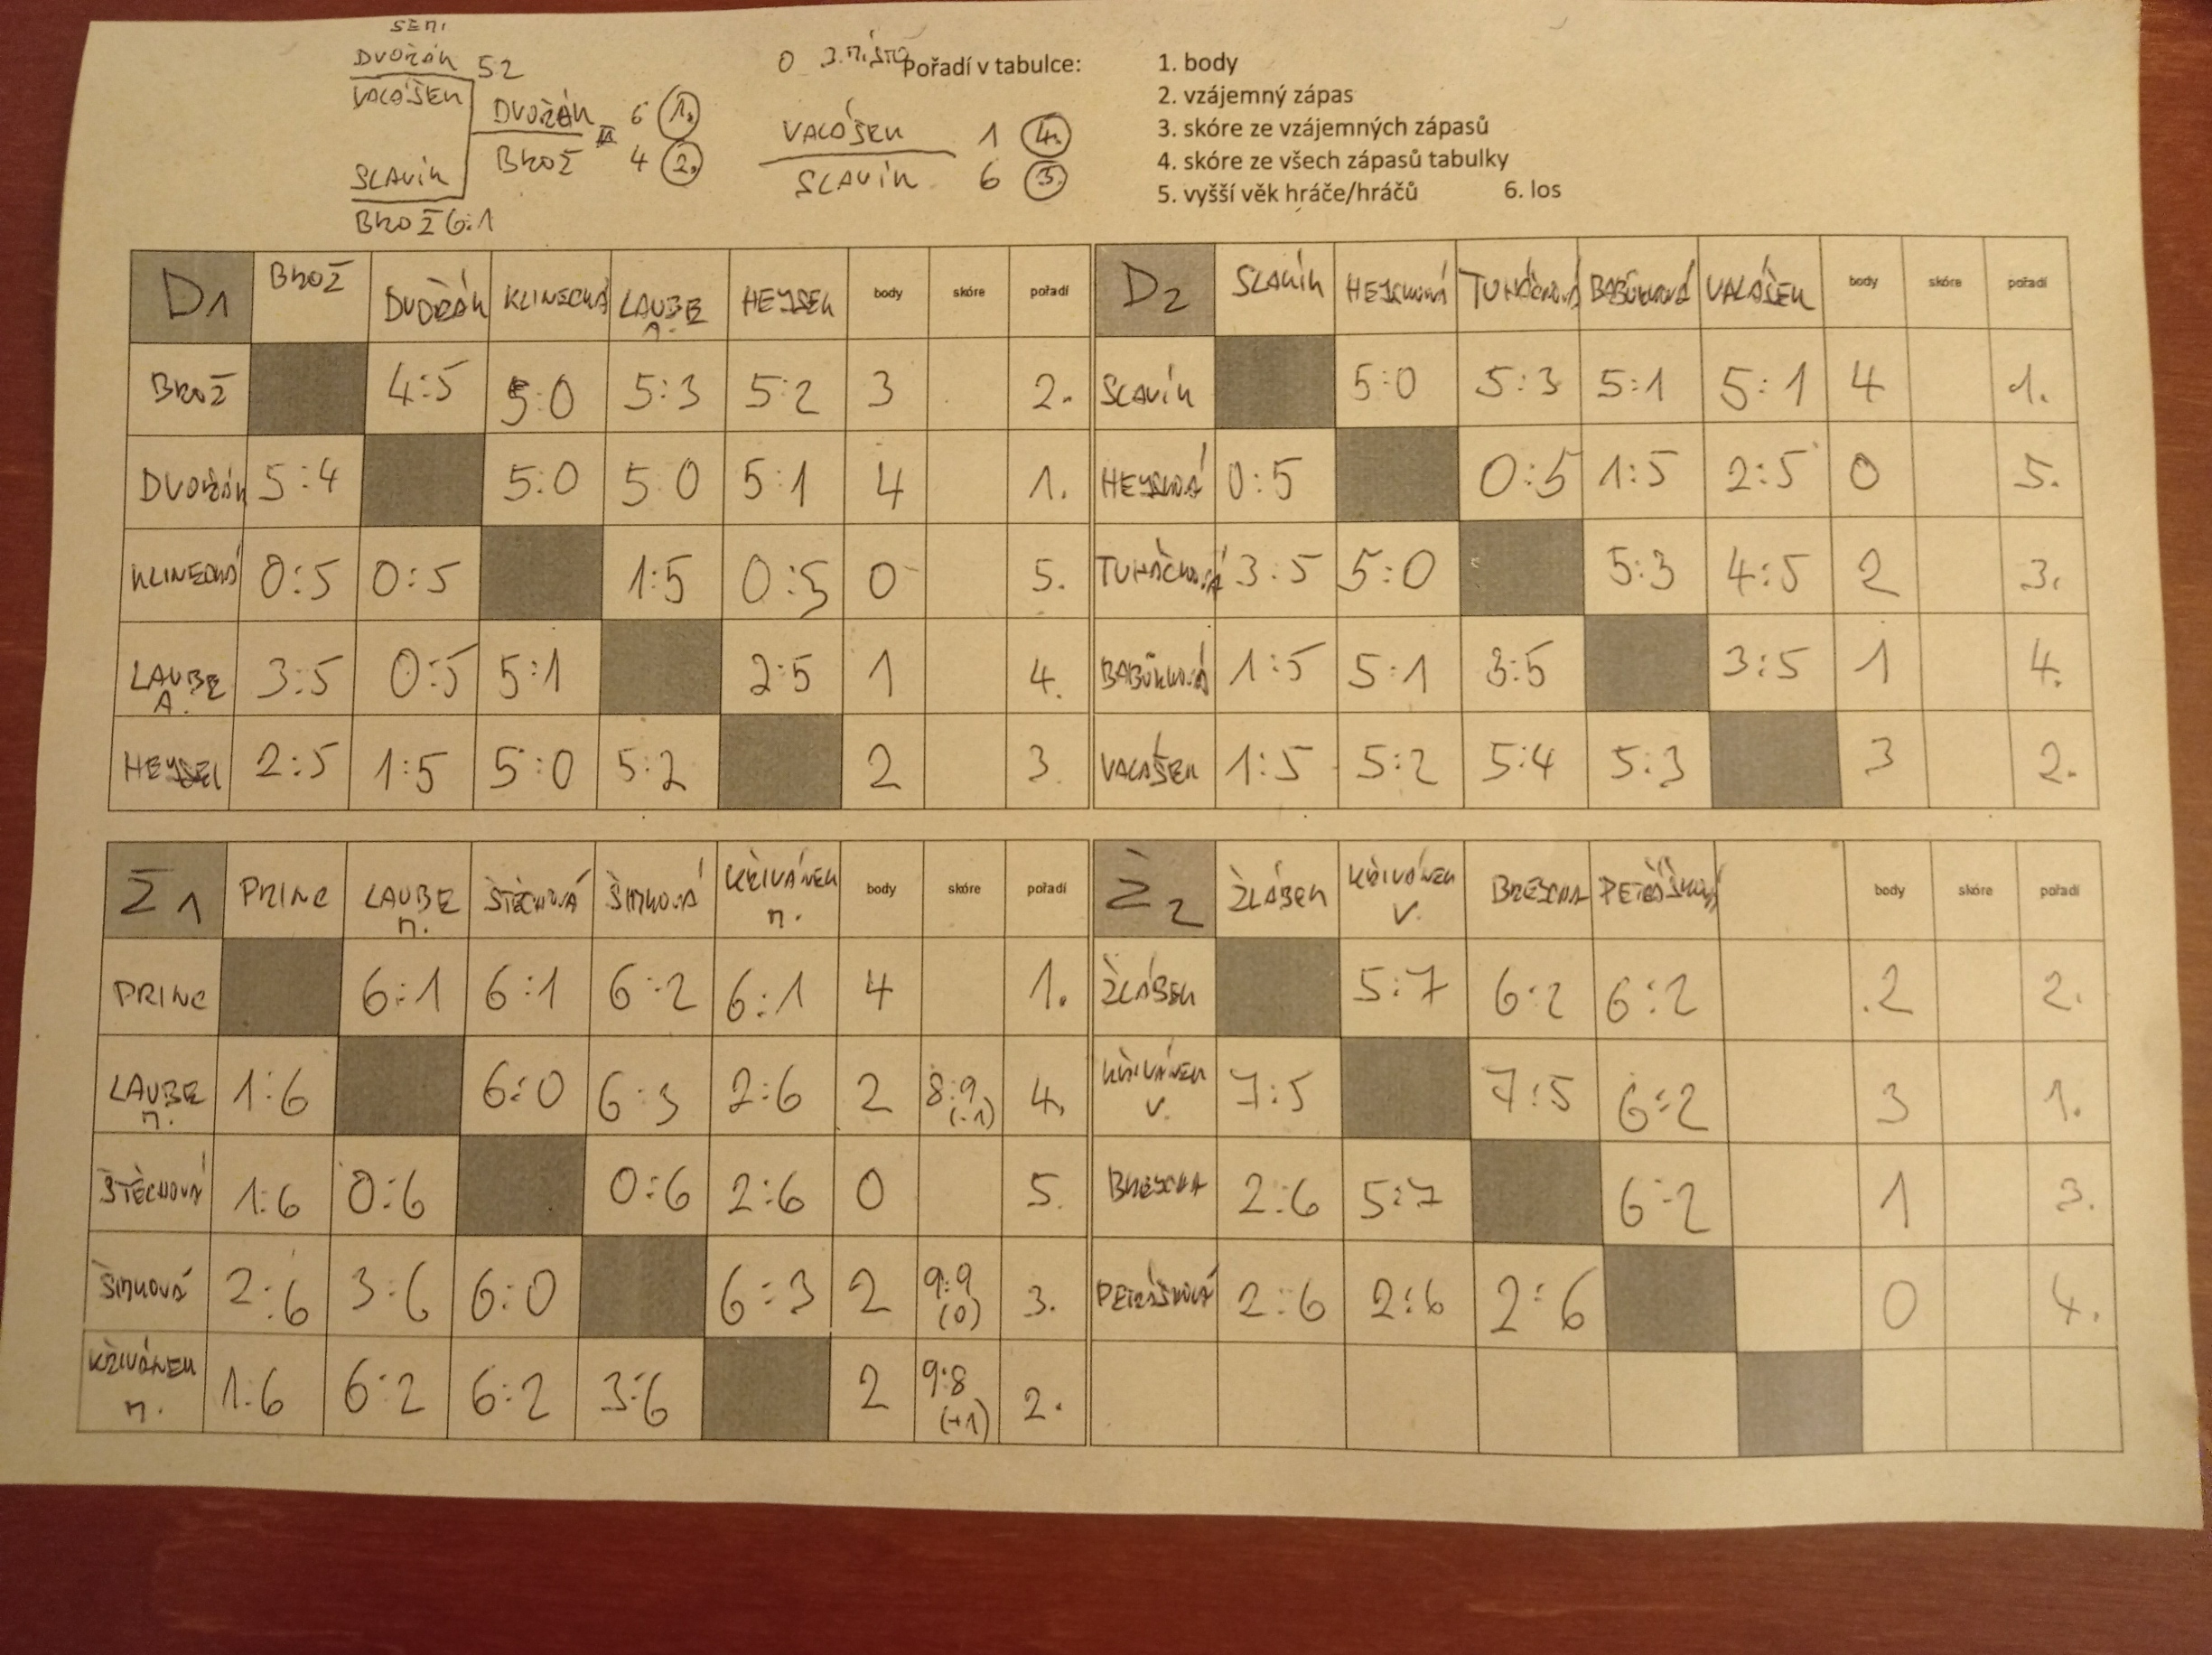 SEMI
DVOŘÁK 5 2
VALÁŠEK
DVOŘÁK 6 1.
BROŽ 4 2.
SLAVÍK
BROŽ 6:1
O 3. MÍSTO
VALÁŠEK 1 4.
SLAVÍK 6 3.
Pořadí v tabulce:
1. body
2. vzájemný zápas
3. skóre ze vzájemných zápasů
4. skóre ze všech zápasů tabulky
5. vyšší věk hráče/hráčů 6. los
D1 BROŽ DVOŘÁK KLINECKÁ LAUBE A. HEJSEK body skóre pořadí
BROŽ 4:5 5:0 5:3 5:2 3 2.
DVOŘÁK 5:4 5:0 5:0 5:1 4 1.
KLINECKÁ 0:5 0:5 1:5 0:5 0 5.
LAUBE A. 3:5 0:5 5:1 2:5 1 4.
HEJSEK 2:5 1:5 5:0 5:2 2 3.
D2 SLAVÍK HEJSKOVÁ TUHÁČKOVÁ BABŮRKOVÁ VALÁŠEK body skóre pořadí
SLAVÍK 5:0 5:3 5:1 5:1 4 1.
HEJSKOVÁ 0:5 0:5 1:5 2:5 0 5.
TUHÁČKOVÁ 3:5 5:0 5:3 4:5 2 3.
BABŮRKOVÁ 1:5 5:1 3:5 3:5 1 4.
VALÁŠEK 1:5 5:2 5:4 5:3 3 2.
Ž1 PRINC LAUBE M. ŠTĚCHOVÁ ŠIMKOVÁ KŘIVÁNEK M. body skóre pořadí
PRINC 6:1 6:1 6:2 6:1 4 1.
LAUBE M. 1:6 6:0 6:3 2:6 2 8:9 (-1) 4.
ŠTĚCHOVÁ 1:6 0:6 0:6 2:6 0 5.
ŠIMKOVÁ 2:6 3:6 6:0 6:3 2 9:9 (0) 3.
KŘIVÁNEK M. 1:6 6:2 6:2 3:6 2 9:8 (+1) 2.
Ž2 ŽLÁBEK KŘIVÁNEK V. BREJCHA PETRÁŠKOVÁ body skóre pořadí
ŽLÁBEK 5:7 6:2 6:2 2 2.
KŘIVÁNEK V. 7:5 7:5 6:2 3 1.
BREJCHA 2:6 5:7 6:2 1 3.
PETRÁŠKOVÁ 2:6 2:6 2:6 0 4.